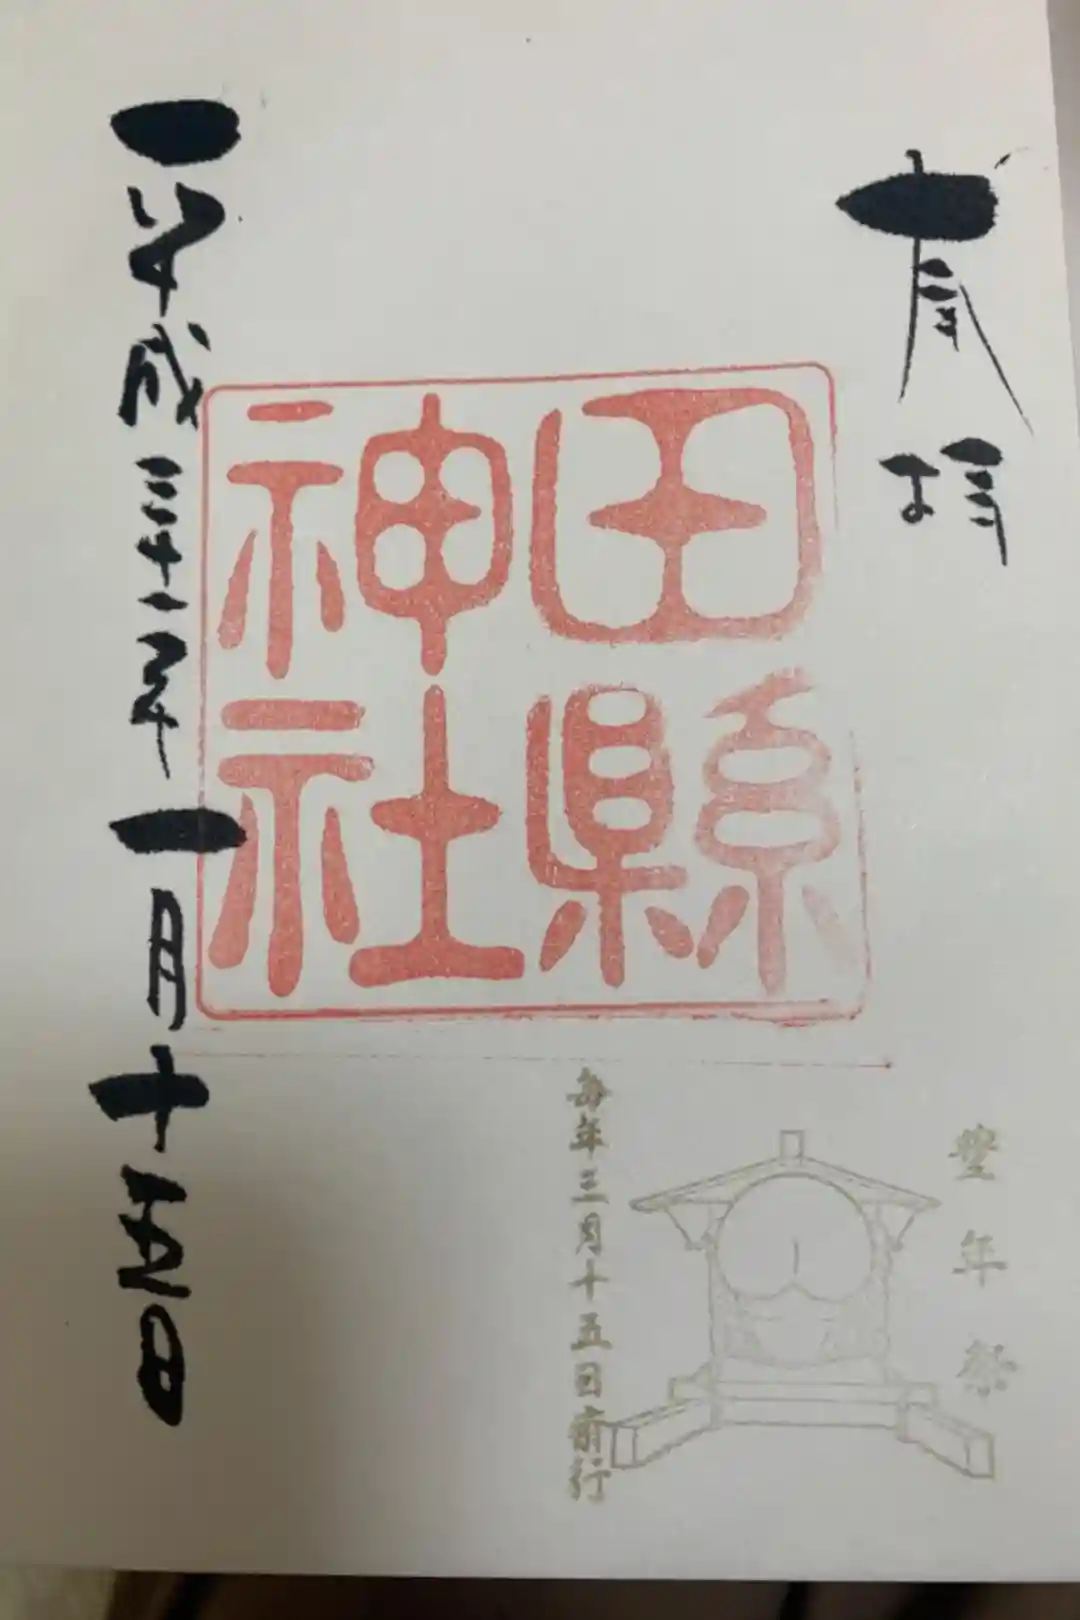 奉拝
田縣
神社
平成三十一年一月十五日
豊年祭
毎年三月十五日斎行